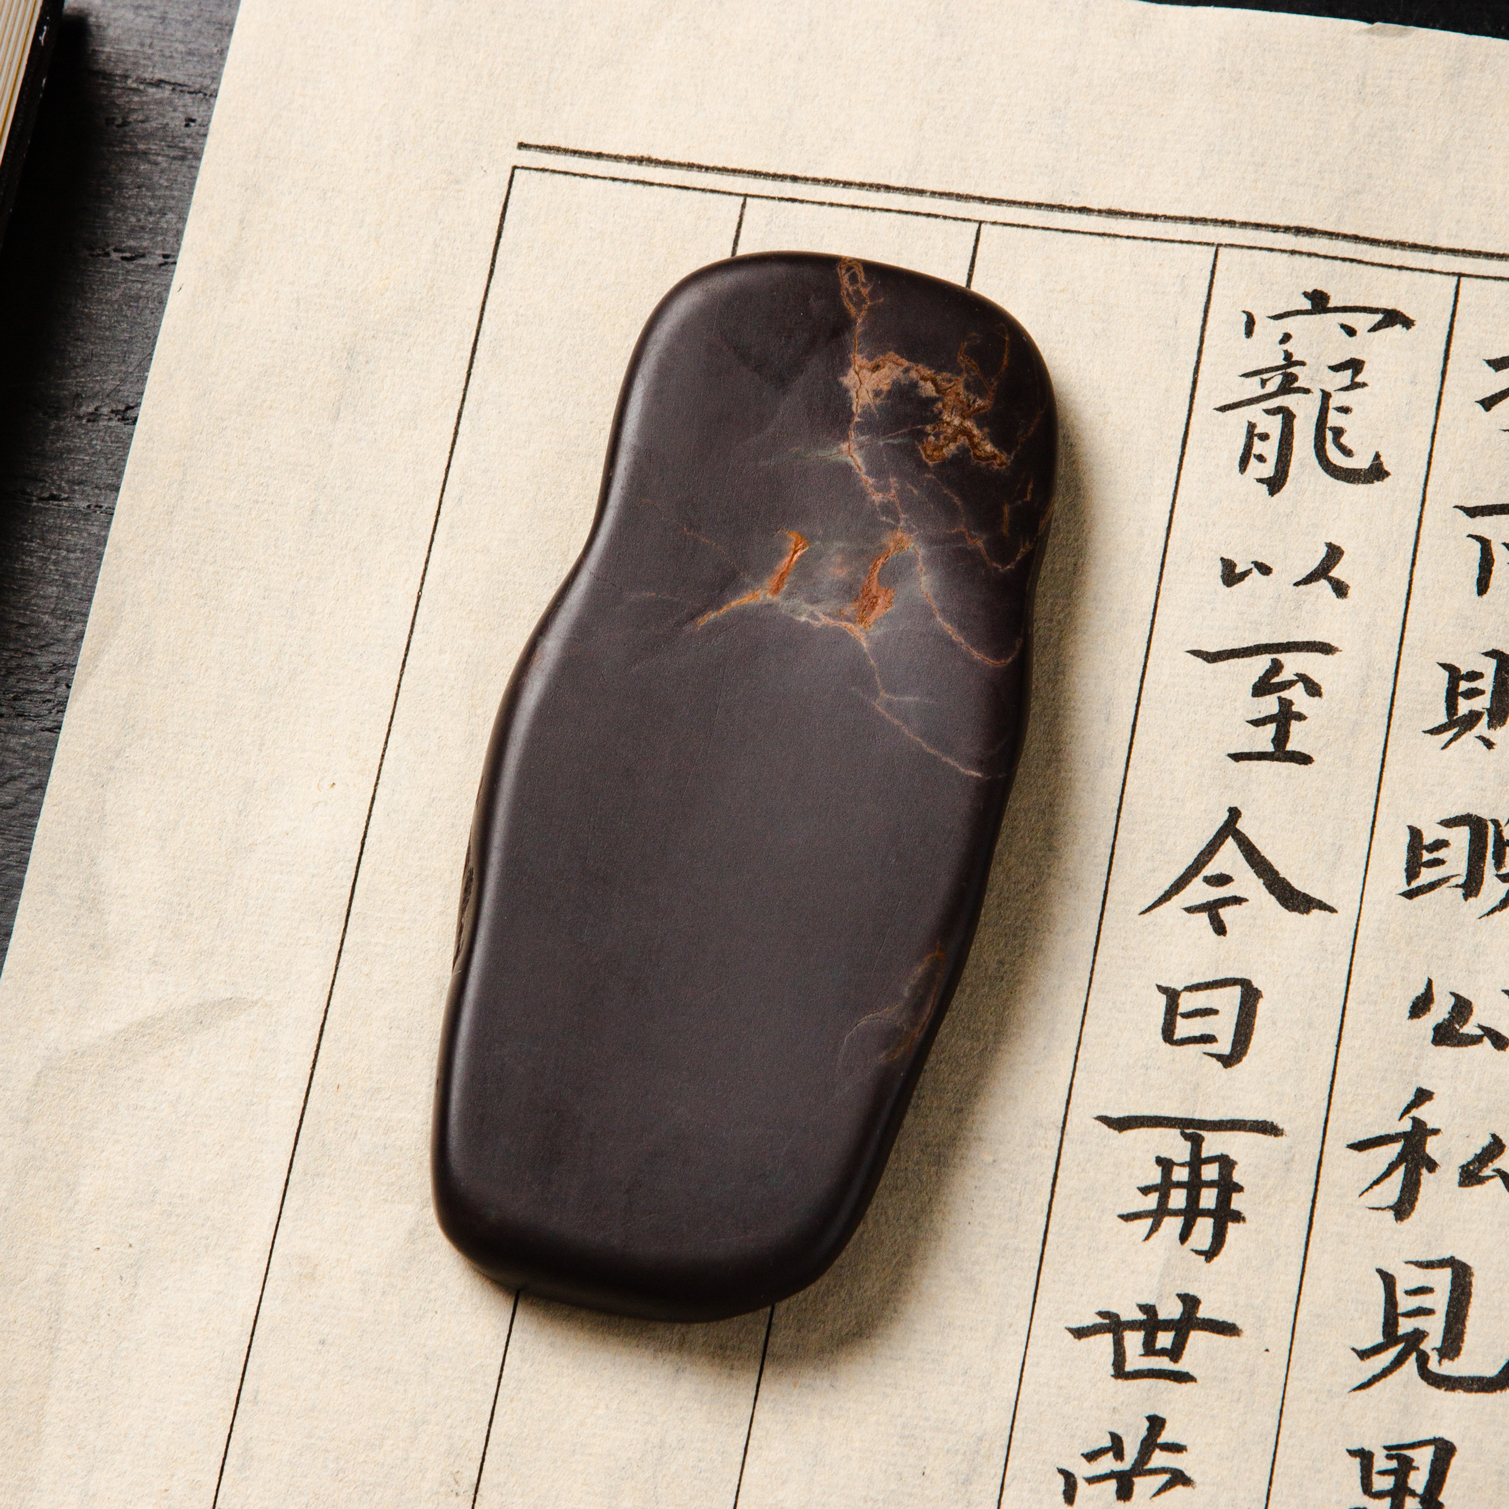 而則明公私見
寵以至今日再世